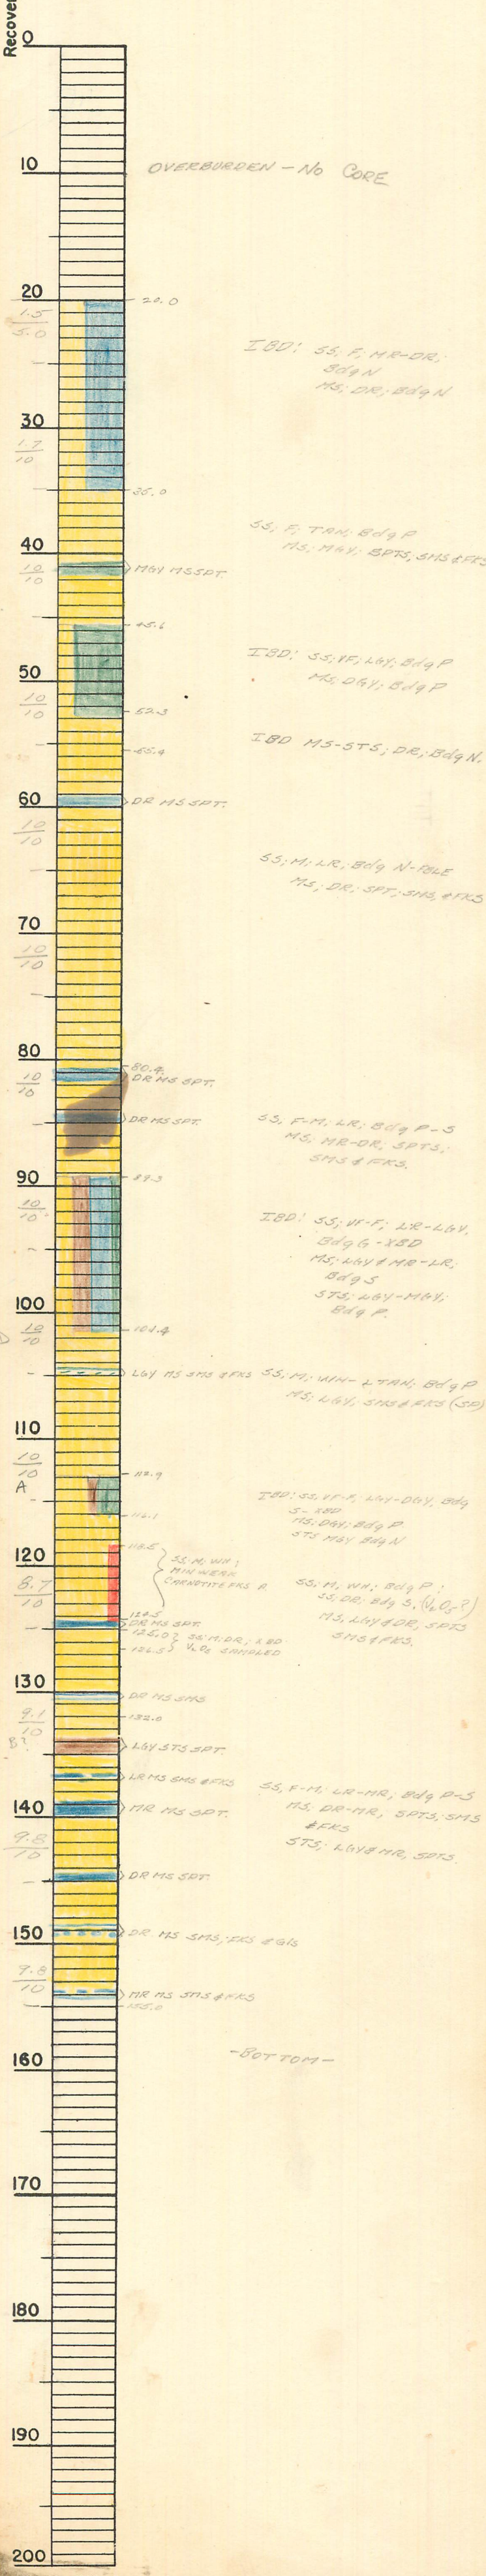 Recover
0
10
OVERBURDEN - NO CORE
20
20.0
1.5
5.0
IBD: SS, F, MR-DR;
Bdg N
MS; DR; Bdg N
30
1.7
10
35.0
SS, F; TAN; Bdg P
MS; MGY; SPTS, SMS & FKS
40
10
10
MGY MS SPT.
45.6
IBD: SS; VF; LGY; Bdg P
MS; DGY; Bdg P
50
10
10
52.3
IBD MS-STS; DR; Bdg N.
55.4
60
DR MS SPT.
10
10
SS; M; LR; Bdg N-
MS; DR; SPT; SMS, & FKS
70
10
10
80
80.4
DR MS SPT.
10
10
DR MS SPT.
SS, F-M; LR; Bdg P-S
MS; MR-DR; SPTS;
SMS & FKS.
90
89.3
10
10
IBD: SS; VF-F; LR-LGY;
Bdg G-XBD
MS; LGY & MR-LR;
Bdg S
STS; LGY-MGY;
Bdg P.
100
101.4
10
10
LGY MS SMS & FKS
SS; M; WH-LTAN; Bdg P
MS; LGY; SMS & FKS (SP)
110
10
10
112.9
A
IBD: SS, VF-F, LGY-DGY, Bdg
S-XBD
MS; DGY; Bdg P
STS MGY Bdg N
116.1
118.5
120
SS; M; WH;
MIN WEAK
CARNOTITE FKS A
8.7
10
SS; M, WH; Bdg P;
SS; DR; Bdg S. (V2O5?)
MS, LGY & DR, SPTS
SMS & FKS.
124.5
DR MS SPT.
125.0
SS; M; DR; XBD
126.5
V2O5 SAMPLED
130
DR MS SMS
132.0
9.1
10
B?
LGY STS SPT.
LR MS SMS & FKS
SS, F-M; LR-MR; Bdg P-S
MS; DR-MR, SPTS; SMS
& FKS
STS; LGY & MR, SPTS
140
MR MS SPT.
9.8
10
DR MS SPT.
150
DR MS SMS, FKS & GIS
9.8
10
MR MS SMS & FKS
155.0
160
-BOTTOM-
170
180
190
200